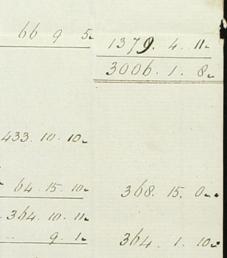 66 9 5
1379. 4. 11
3006. 1. 8
433. 10. 10
64. 15. 10 368. 15. 0
364. 10. 11
9. 1 364. 1. 10